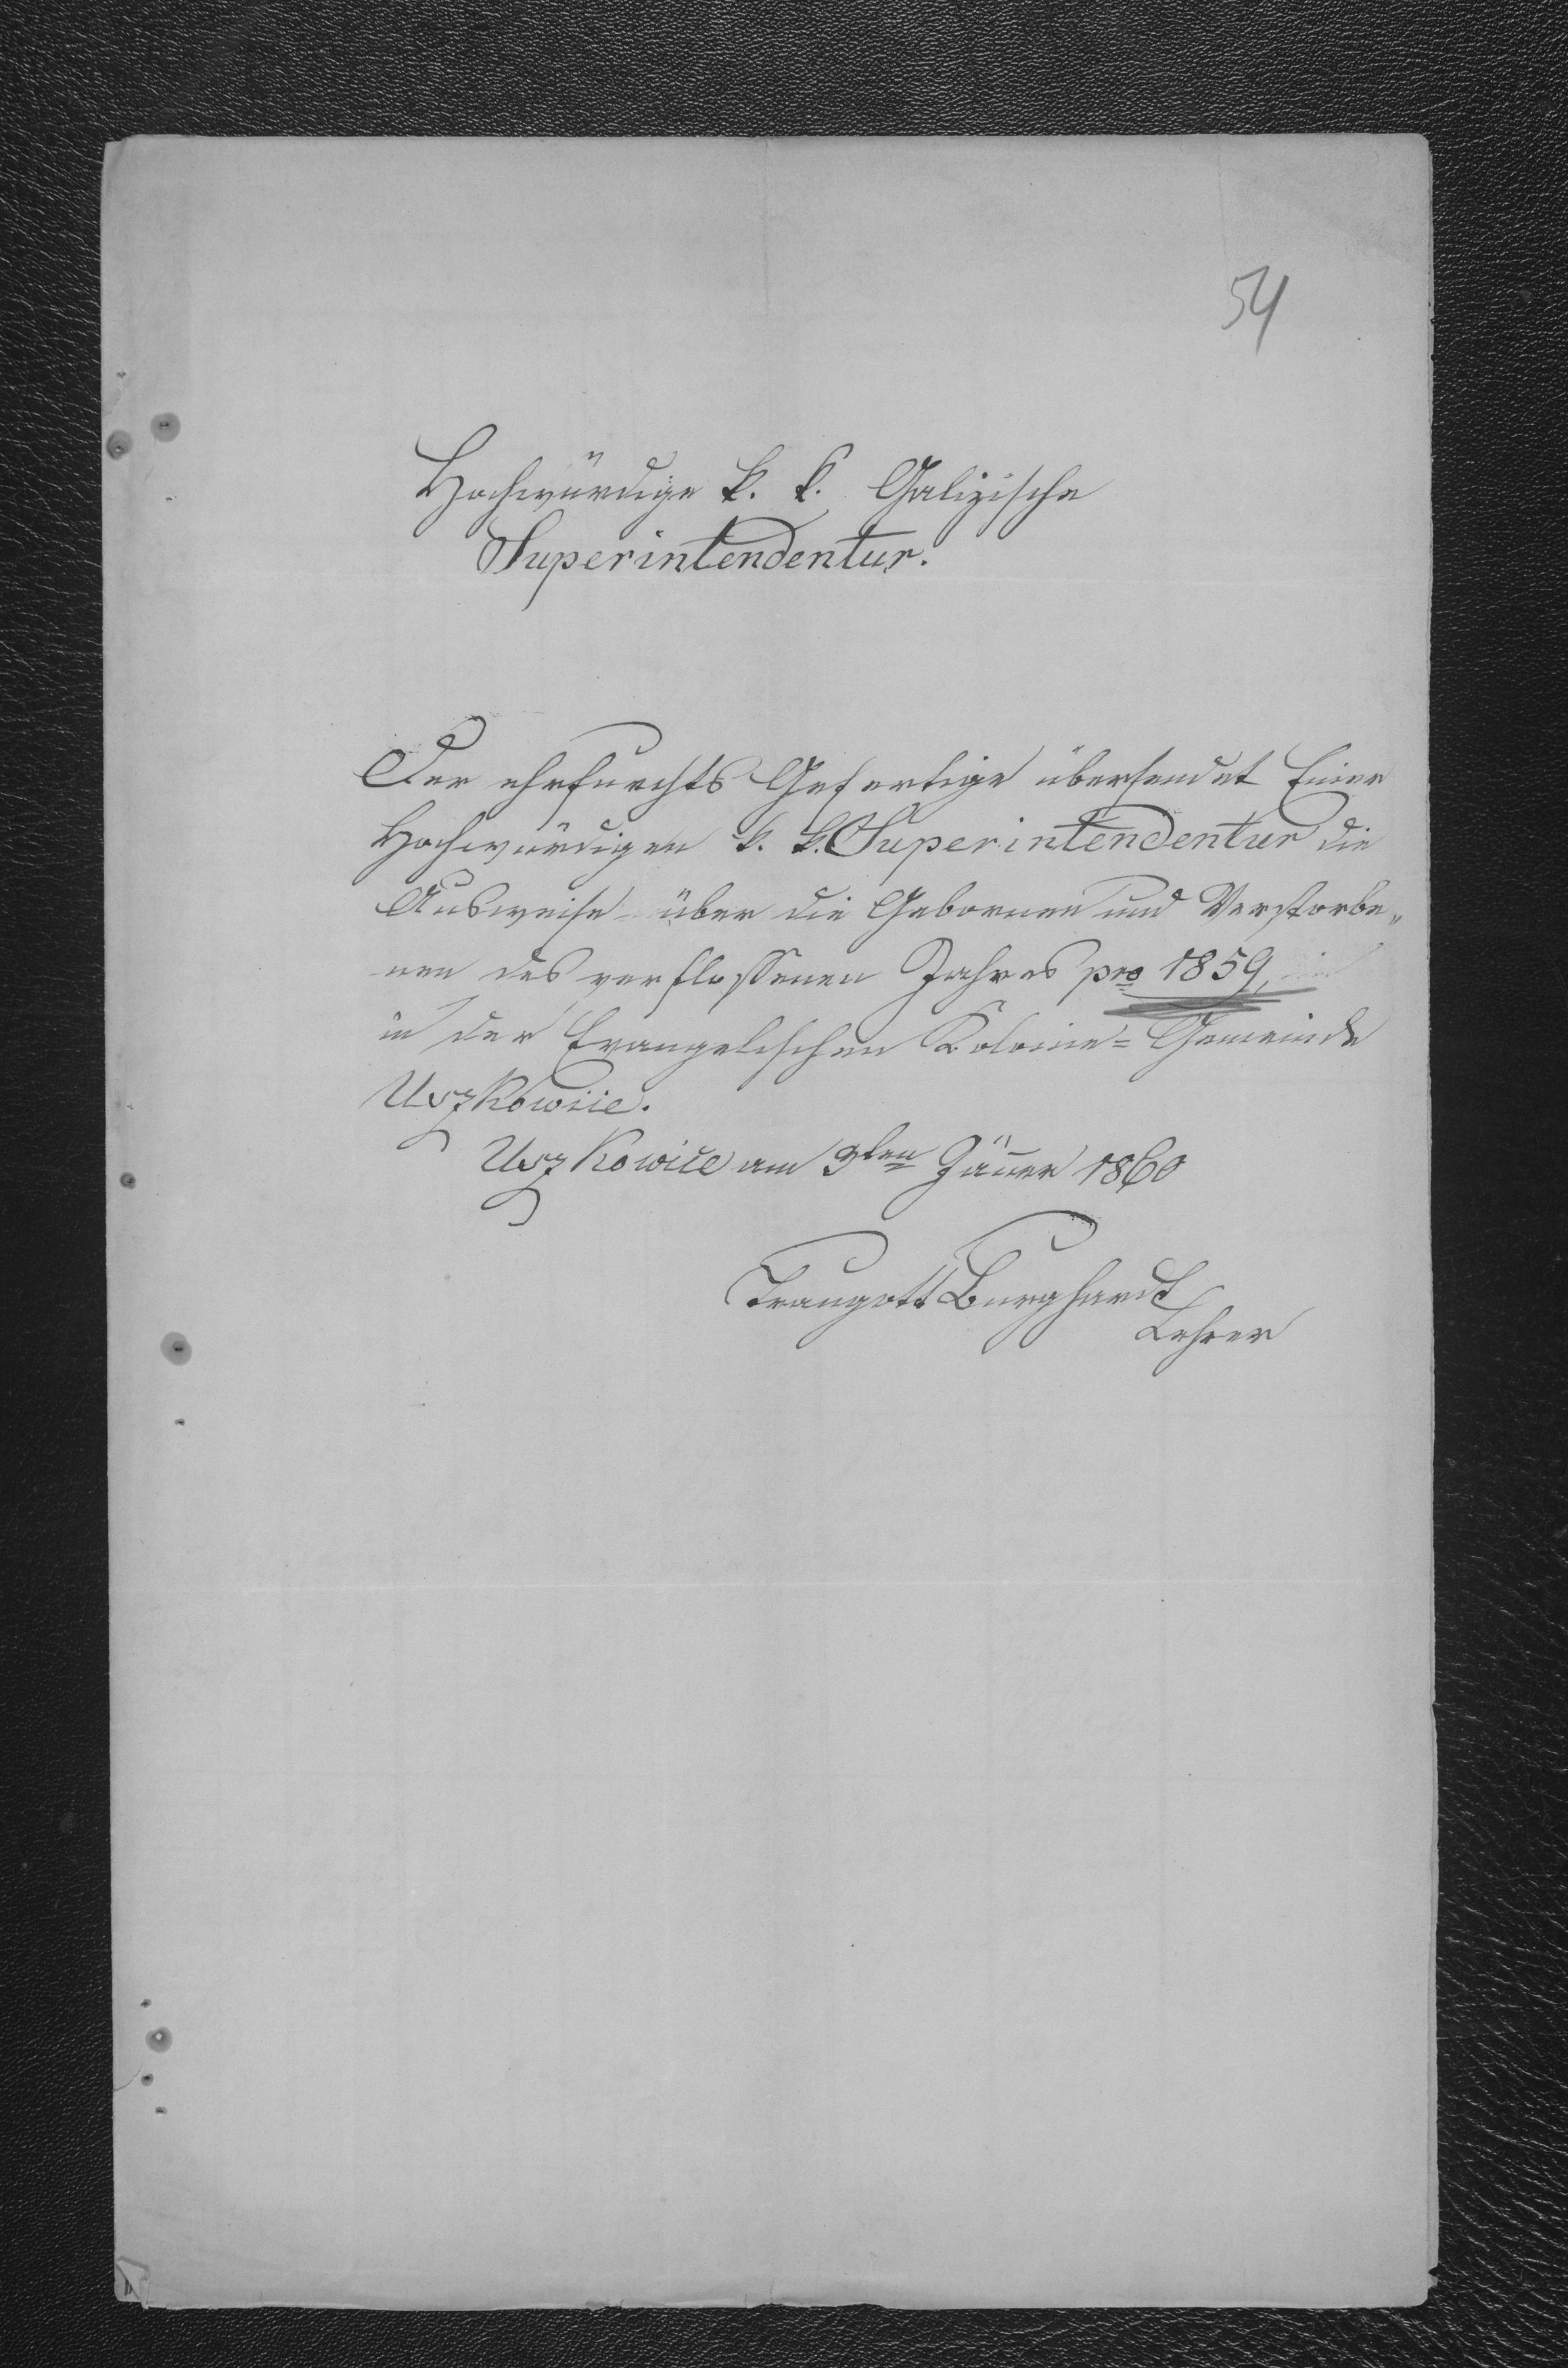 54
Hochwürdige k. k. Galizische
Superintendentur.
Der ehrfurchts Gefertige übersendet Einer
Hochwürdigen k. k. Superintendentur die
Ausweise über die Gebornen und Verstorbe„
nen des verflossenen Jahres pro 1859,
in der Evangelischen Kolonie=Gemeinde
Uszkowice.
Uszkowice am 9ten Jäner 1860
Traugott Burghardt
Lehrer